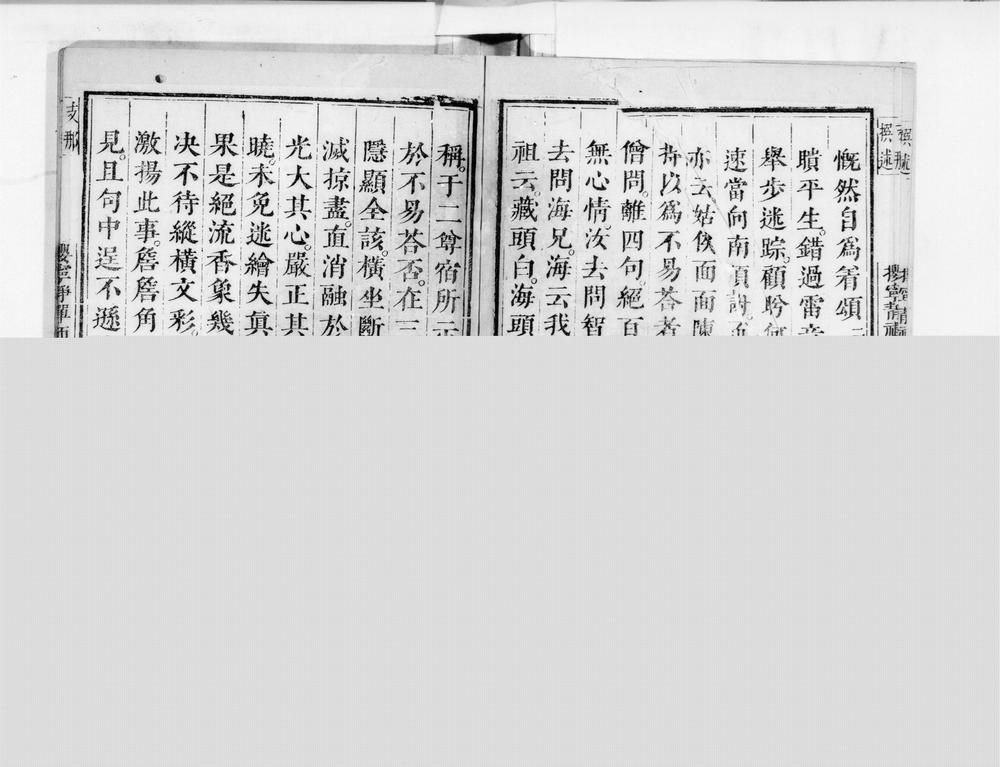 撰述
慨然自為着頌
瞶平生。錯過雷音
舉步迷踪。顧盻何
速當向南頂討
亦云姑俟面面陳
將以為不易答者
僧問。離四句。絕百
無心情。汝去問智
去問海兄。海云我
祖云。藏頭白。海頭
稱。于二尊宿所示
於不易荅否。在三
隱顯全該。橫坐斷
滅掠盡。直消融於
光大其心。嚴正其
曉。未免逃繪失真
果是絕流香象幾
决不待縱橫文彩
激揚此事。詹詹角
見。且句中逞不遜
支那